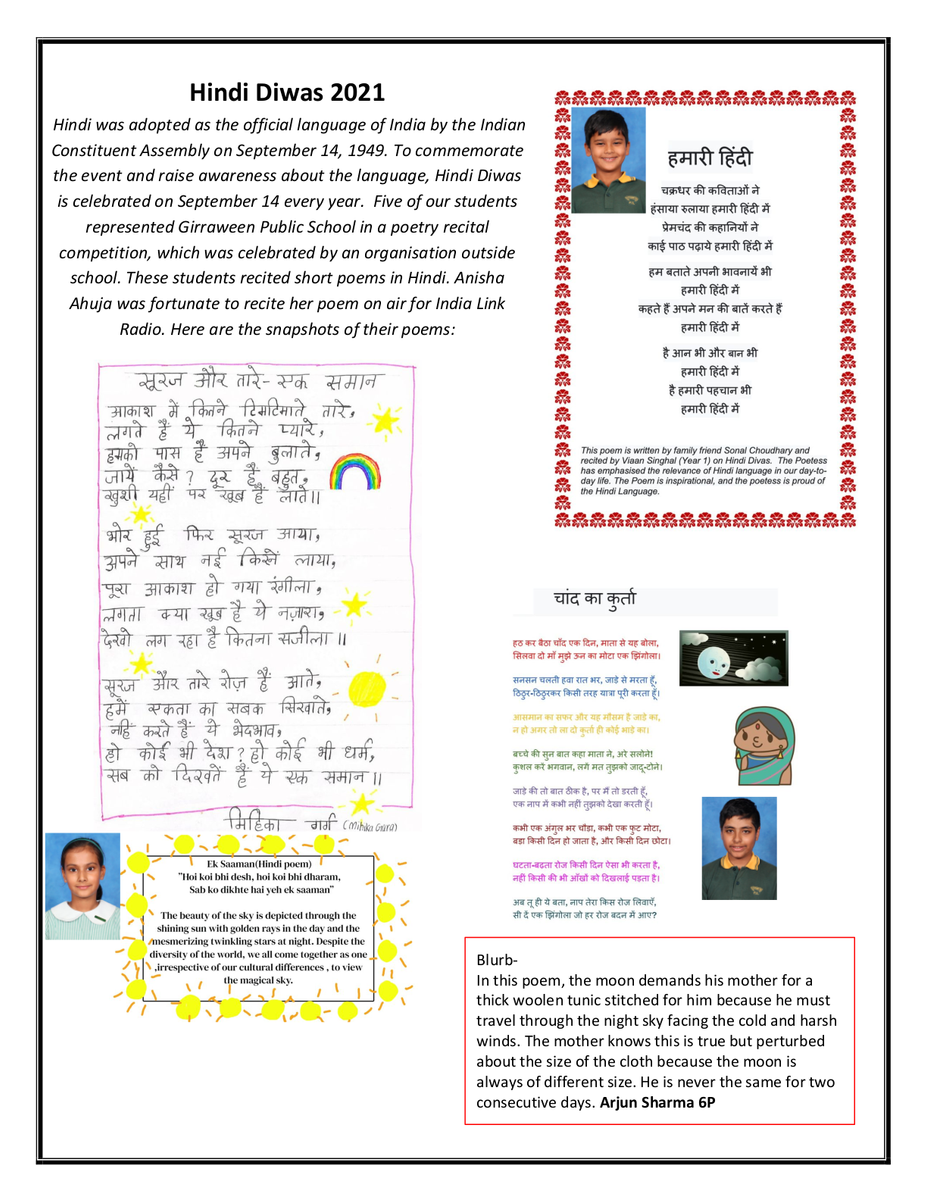 Hindi Diwas 2021
Hindi was adopted as the official language of India by the Indian
Constituent Assembly on September 14, 1949. To commemorate
the event and raise awareness about the language, Hindi Diwas
is celebrated on September 14 every year. Five of our students
represented Girraween Public School in a poetry recital
competition, which was celebrated by an organisation outside
school. These students recited short poems in Hindi. Anisha
Ahuja was fortunate to recite her poem on air for India Link
Radio. Here are the snapshots of their poems:
सूरज और तारे- एक समान
आकाश में कितने टिमटिमाते तारे,
लगते हैं ये कितने प्यारे,
हमको पास हैं अपने बुलाते,
जायें कैसे? दूर है बहुत,
खुशी यहीं पर खूब हैं लाते।।
भोर हुई फिर सूरज आया,
अपने साथ नई किरनें लाया,
पूरा आकाश हो गया रंगीला,
लगता क्या खूब है ये नज़ारा,
देखो लग रहा है कितना सजीला ।।
सूरज और तारे रोज़ हैं आते,
हमें एकता का सबक सिखाते,
नहीं करते हैं ये भेदभाव,
हो कोई भी देश? हो कोई भी धर्म,
सब को दिखतें हैं ये एक समान।।
मिहिका गर्ग (Mihika Garg)
Ek Saaman(Hindi poem)
"Hoi koi bhi desh, hoi koi bhi dharam,
Sab ko dikhte hai yeh ek saaman”
The beauty of the sky is depicted through the
shining sun with golden rays in the day and the
mesmerizing twinkling stars at night. Despite the
diversity of the world, we all come together as one
,irrespective of our cultural differences , to view
the magical sky.
हमारी हिंदी
चक्रधर की कविताओं ने
हंसाया रुलाया हमारी हिंदी में
प्रेमचंद की कहानियों ने
काई पाठ पढ़ाये हमारी हिंदी में
हम बताते अपनी भावनायें भी
हमारी हिंदी में
कहते हैं अपने मन की बातें करते हैं
हमारी हिंदी में
है आन भी और बान भी
हमारी हिंदी में
है हमारी पहचान भी
हमारी हिंदी में
This poem is written by family friend Sonal Choudhary and
recited by Viaan Singhal (Year 1) on Hindi Divas. The Poetess
has emphasised the relevance of Hindi language in our day-to-
day life. The Poem is inspirational, and the poetess is proud of
the Hindi Language.
चांद का कुर्ता
हठ कर बैठा चाँद एक दिन, माता से यह बोला,
सिलवा दो माँ मुझे ऊन का मोटा एक झिंगोला।
सनसन चलती हवा रात भर, जाड़े से मरता हूँ,
ठिठुर-ठिठुरकर किसी तरह यात्रा पूरी करता हूँ।
आसमान का सफर और यह मौसम है जाड़े का,
न हो अगर तो ला दो कुर्ता ही कोई भाड़े का।
बच्चे की सुन बात कहा माता ने, अरे सलोने!
कुशल करें भगवान, लगें मत तुझको जादू-टोने।
जाड़े की तो बात ठीक है, पर मैं तो डरती हूँ,
एक नाप में कभी नहीं तुझको देखा करती हूँ।
कभी एक अंगुल भर चौड़ा, कभी एक फुट मोटा,
बड़ा किसी दिन हो जाता है, और किसी दिन छोटा।
घटता-बढ़ता रोज किसी दिन ऐसा भी करता है,
नहीं किसी की भी आँखों को दिखलाई पड़ता है।
अब तू ही ये बता, नाप तेरा किस रोज लिवाएँ,
सी दें एक झिंगोला जो हर रोज बदन में आए?
Blurb-
In this poem, the moon demands his mother for a
thick woolen tunic stitched for him because he must
travel through the night sky facing the cold and harsh
winds. The mother knows this is true but perturbed
about the size of the cloth because the moon is
always of different size. He is never the same for two
consecutive days. Arjun Sharma 6P